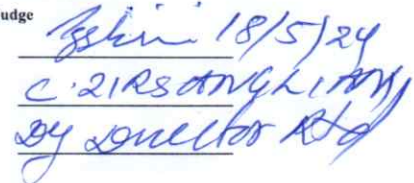 udge
18/5/24
C. ZIRSANGLIANA
Dy Director Rtd